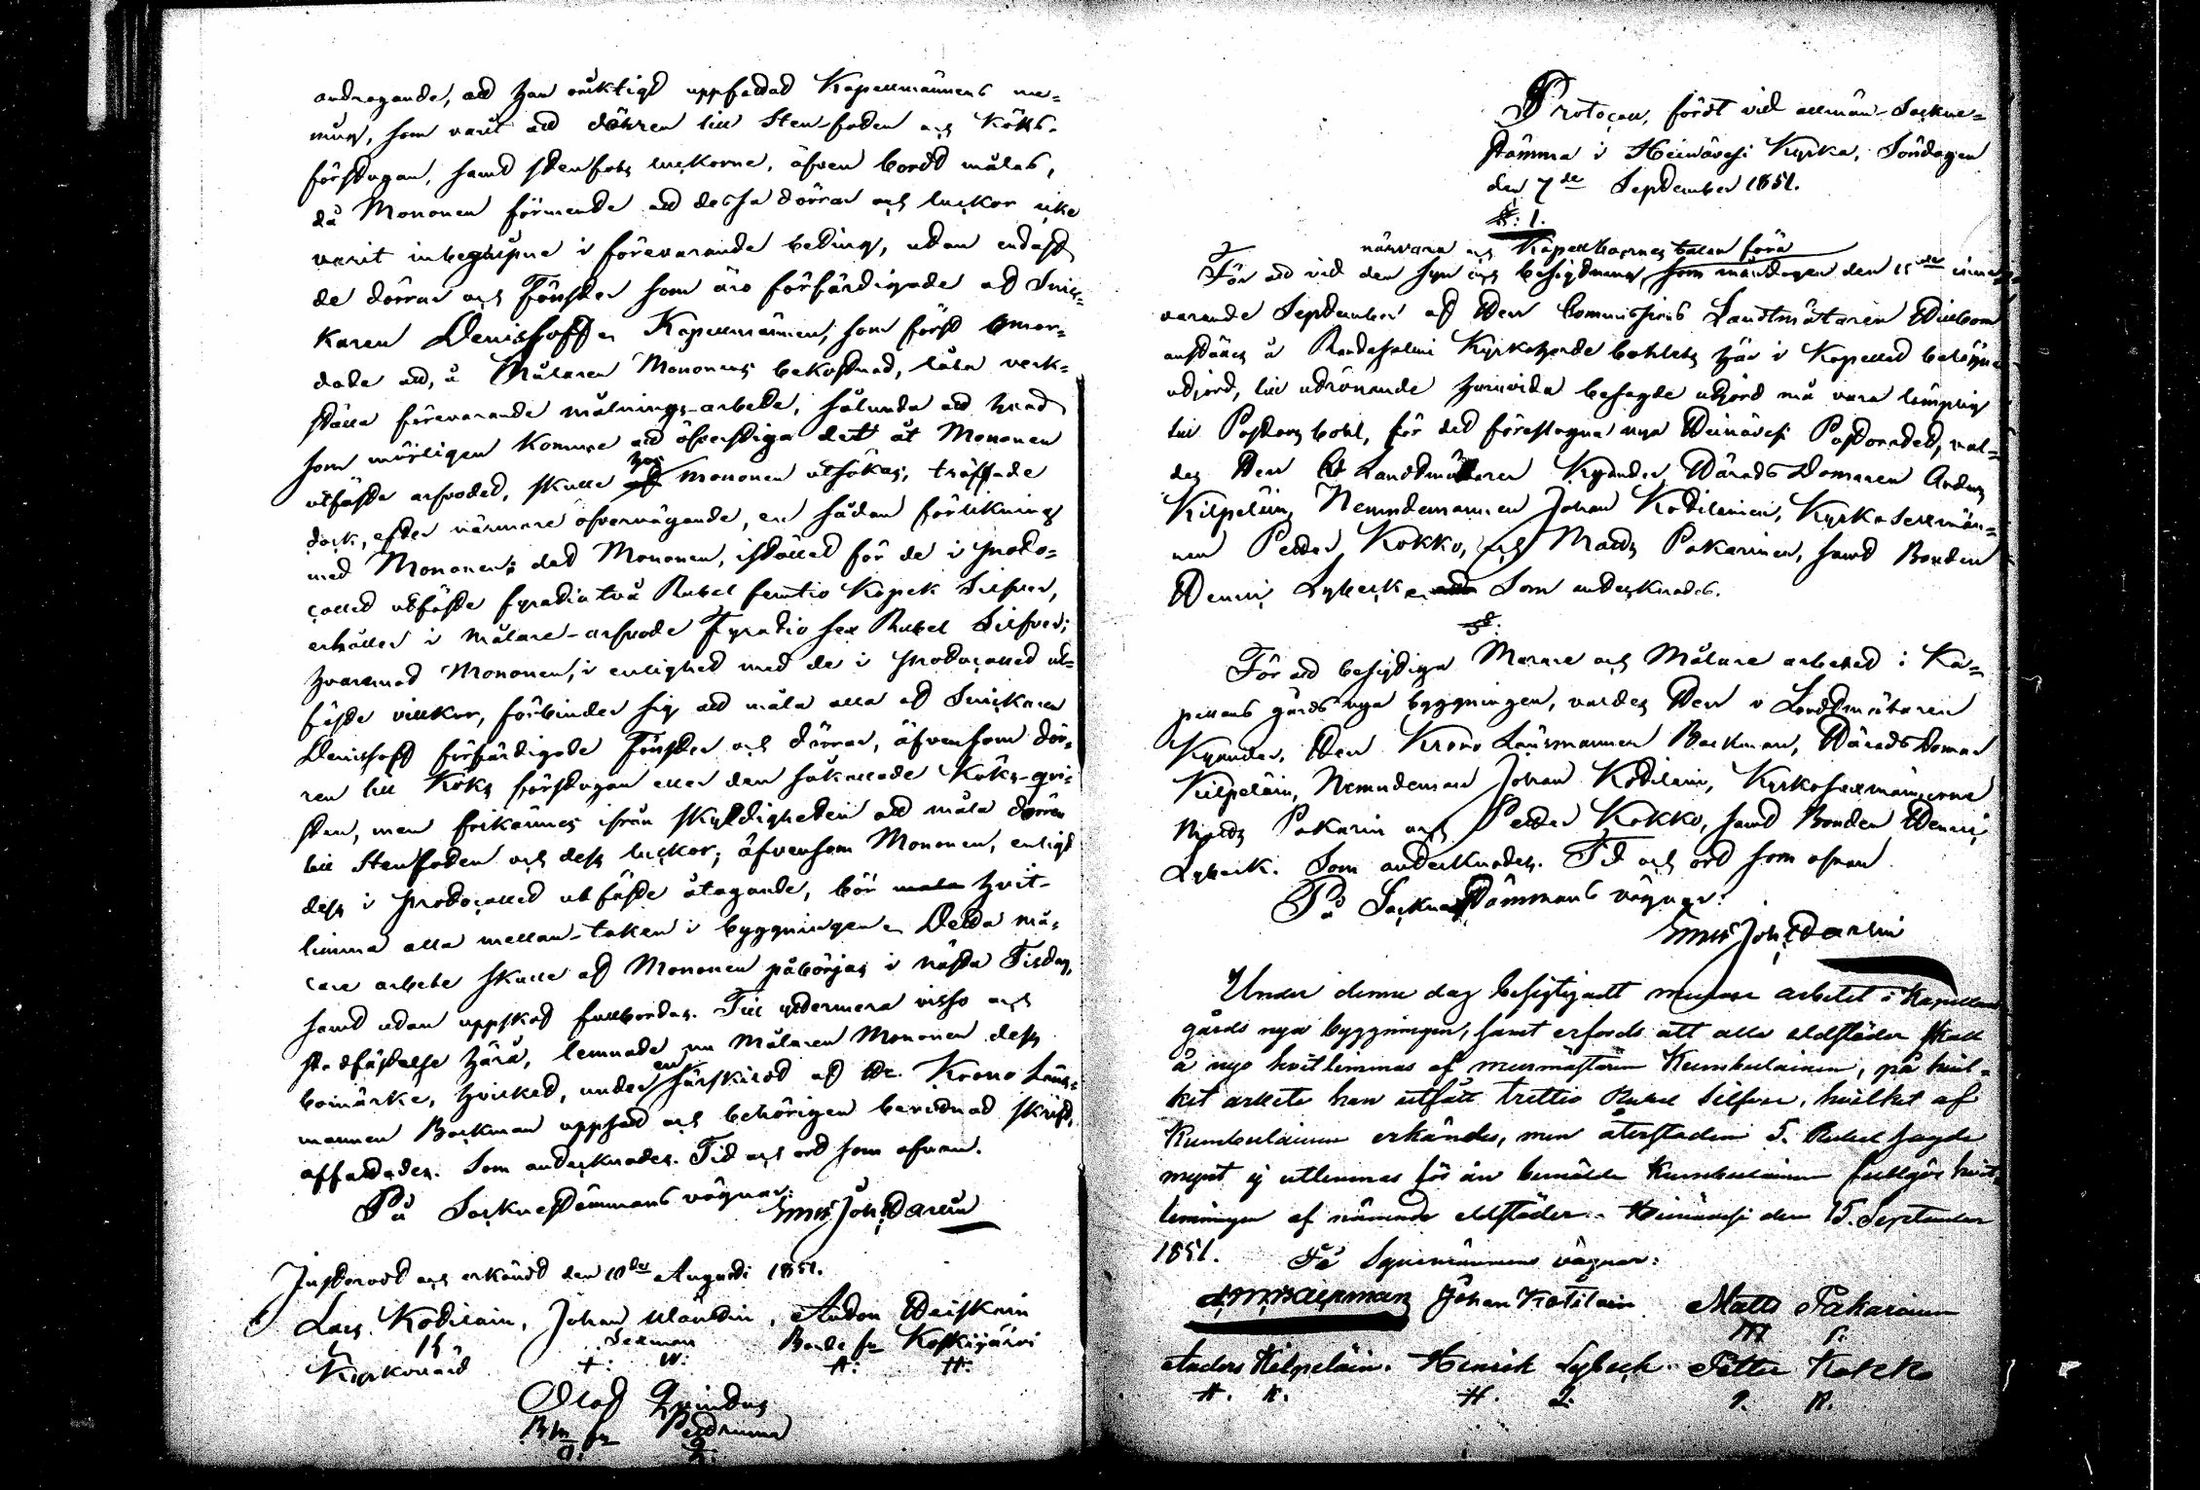 andragande, att han oriktigt uppfattat Kapellmännens me=
ning, som varit att dörren till Sten-foden och Köks-
förstugan, samt stenfots luckorne, äfven bordt målas,
då Mononen förmente att dessa dörrar och luckor icke
varit inbegripne i förevarande beting, utan endast
de dörrar och Fönster som äro förfärdigade af Snic=
karen Denishoff
Kapellmännen, som först
dade att, å Målaren Mononens bekostnad, låta verk=
ställa förevarande målnings-arbete, sålunda att hvad
som möjligen komme att öfverstiga dett åt Mononen
utfäste arfvodet, skulle hos Mononen utsökas; träffade
dock, efter närmare öfvervägande, en sådan förlikning
med Mononen: att Mononen, istället för de i Proto=
collet utfäste fyratio två Rubel femtio Kopek Silfver,
erhåller i målare-arfvode Fyratio sex Rubel Silfver;
hvaremot Mononen, i enlighet med de i Protocollet ut=
fäste villkor, förbinder sig att måla alla af Snickaren
Denishoff förfärdigade Fönster och dörrar, äfvensom dör=
ren till Köks förstugan eller den såkallade Köks-qvi=
sten, men frikännes ifrån skyldigheten att måla dörren
till Stenfoden och dess luckor; äfvensom Mononen, enligt
dess i Protocollet utfäste åtagande, bör hvit-
limma alla mellan-taken i byggningen. Detta må=
lare arbete skulle af Mononen påbörjas i nästa Tisdag,
samt utan uppskof fullbordas. Till ydermera visso och
stadfästelse härå, lemnade nu Målaren Mononen dess
bomärke, hvilket, under en särskildt af Hr. Krono Läns=
mannen Backman uppsatt och behörigen bevittnad skrift,
affattades. Som anteknades. Tid och ort som ofvan.
På Sockne Stämmans vägnar:
Emil Joh: Darlin
Justeradt och erkändt den 10de Augusti 1851.
Lars Kotilain, Johan Mländin, Anton Heiskain
K
Kyrkovärd
Sexman
Bonde fr Koskijärvi
Olof Qvindus
Bln fr Petruma
Protocoll, fördt vid allmän Sockne=
stämma i Heinävesi Kyrka, Söndagen
den 7de September 1851.
§: 1.
närvara och Kapellboernes talan föra
För att vid den syn och besigtning, som måndagen den 15de inne=
varande September af Herr Commissions Landtmätaren Widbom
anställes å Randasalmi Kyrkoherde bohlets här i Kapellet belägne
utjord, till utrönande huruvida besagde utjord må vara lämplig
till Pastors bohl, för det föreslagna nya Heinävesi Pastoratet, val=
des Herr Landtmätaren Kyander, Härads Domaren Anders
Kilpeläin, Nemndemannen Johan Kotilainen, Kyrko Sexmän=
nen Petter Kokko, och Matts Pakarinen, samt Bonden
Henric Lyback. Som anteknades.
§:
För att besigtiga Murare och Målare arbetet i Ka=
pellans gårds nya byggningen, valdes Herr v Landtmätaren
Kyander, Herr Krono Länsmannen Backman, Härads Domar
Kilpeläin, Nemndeman Johan Kotilain, Kyrkosexmännerne
Matts Pakarin och Petter Kokko, samt Bonden Henric
Lyback. Som anteknades. Tid och ort som ofvan
På Sockne Stämmans vägnar:
Emil Joh: Darlin
Under denne dag besigtigadt murare arbetet i Kapellans
gårds nya byggningen, samt erfords att alla eldstäder skall
å nyo hvitlimmas af murmästaren Kumbulainen, på hvil=
ket arbete han utfått trettio Rubel Silfver, hvilket af
Kumbulainen erkändes, men återstaden 5. Rubel sagde
mynt ej utlemnas för än bemälde Kumbulainen fullgör hvit
limningen af nämnde eldstäder. Heinävesi den 15. September
1851.
På Synemännens vägnar:
Backman Johan Kotilain Matts Pakarinen
M P.
Anders Kilpeläin. Henrik Lyback. Petter Kokko
A. K. H. L. P. K.